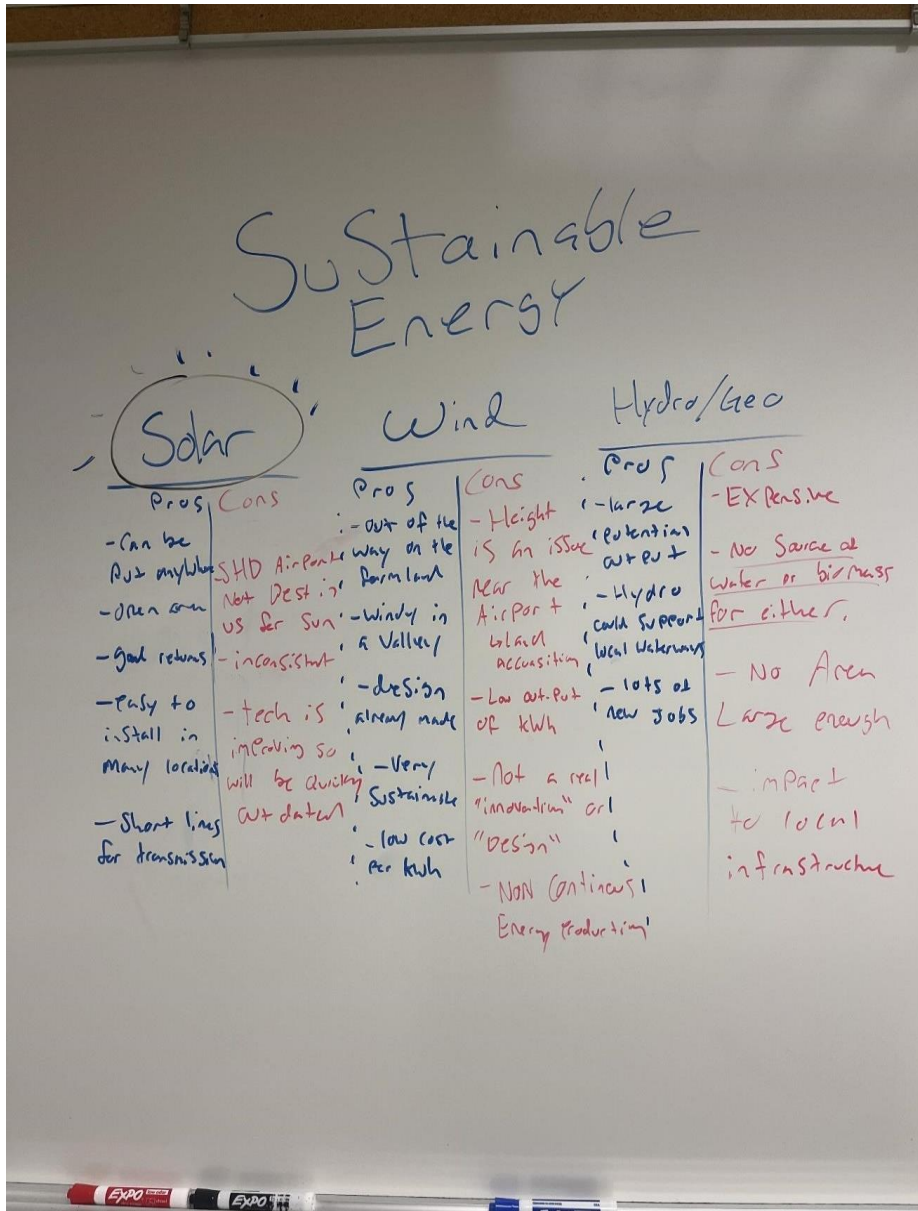 SuStainable
Energy
Solar
Pros
-Can be
Put anywhere
-open area
-good returns
-easy to
install in
many locations
-Short lines
for transmission
Cons
SHD Airport
Not Best in
us for Sun
-inconsistent
-tech is
improving so
will be quickly
outdated
Wind
Pros
-out of the
way on the
farmland
-windy in
a Valley
-design
already made
-Very
Sustainable
-low cost
Per kwh
Cons
-Height
is an issue
near the
Airport
land
-Low out-Put
of kwh
-Not a real
"innovation" or
"Design"
-NON Continous
Energy Production
Hydro/Geo
Pros
-large
potential
output
-Hydro
could Support
local waterways
-lots of
new jobs
Cons
-EXPensive
-No Source of
water or biomass
for either.
-No Area
Large enough
-impact
to local
infrastructure
EXPO
EXPO